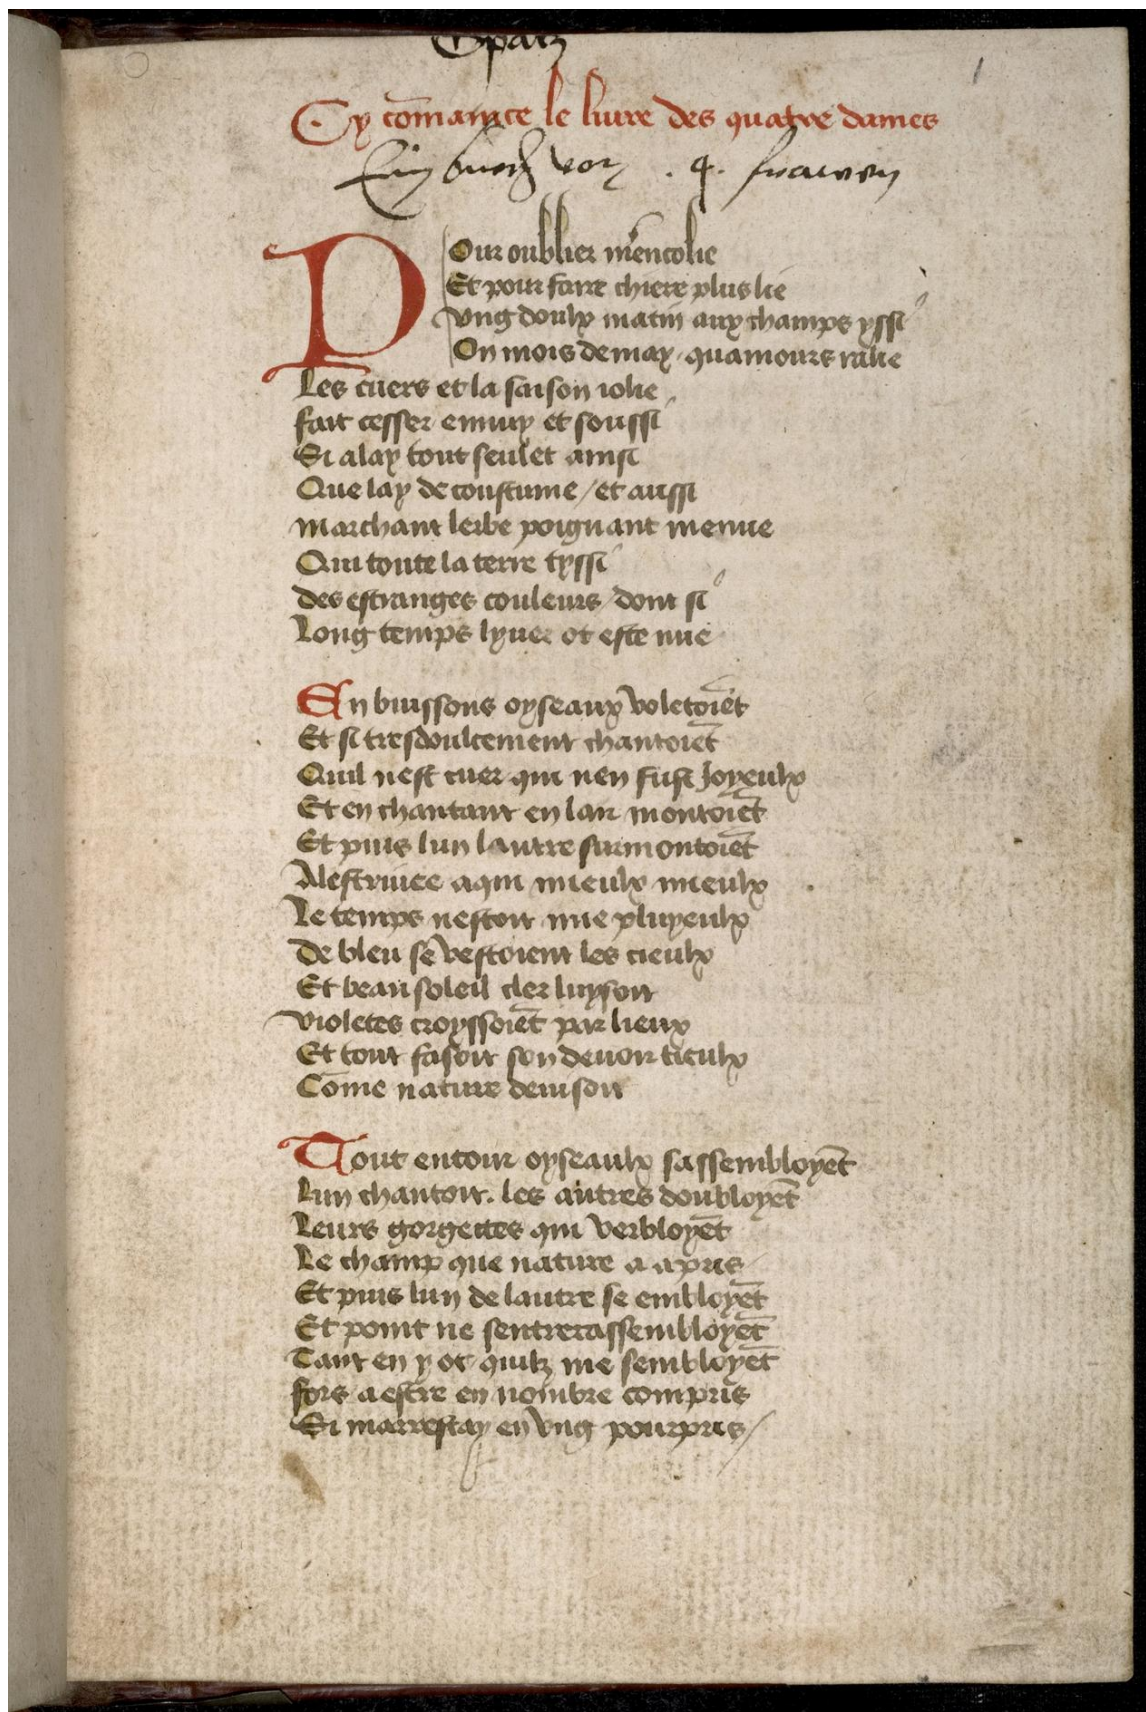 1
Cy cõmance le liure des quatre dames
Ein buech von .4. frawen
POur oublier merencolie
Et pour faire chiere plus lie
Vng doulx matin aux champs yssi
On mois de may quamours ralie
Les cuers et la saison iolie
fait cesser ennuy et soussi
Si alay tout seulet ainsi
Que lay de coustume / et aussi
Marchant lerbe poignant menue
Qui toute la terre tyssi
des estranges couleurs dont si
Long temps lyuer ot este nue
En buissons oyseaux voletoiẽt
Et si tresdoulcement chantoiẽt
Quil nest cuer qui nen fust Joyeulx
Et en chantant en lair montoiẽt
Et puis lun lautre surmontoiẽt
Alestriuee aqui mieulx mieulx
Le temps nestoit mie pluyeulx
De bleu se vestoient les cieulx
Et beau soleil cler luysoit
Violetes croyssoiẽt par lieux
Et tout fasoit son deuoir tieulx
Cõme nature deuisoit
Tout entour oyseaulx sassembloyẽt
Lun chantoit. les autres doubloyẽt
Leurs gorgettes qui verbloyẽt
Le champ que nature a apris
Et puis lun de lautre se embloyẽt
Et point ne sentrerassembloyẽt
Tant en y ot quilz me sembloyẽt
fors a estre en nombre compris
Si marrestay en vng pourpris /